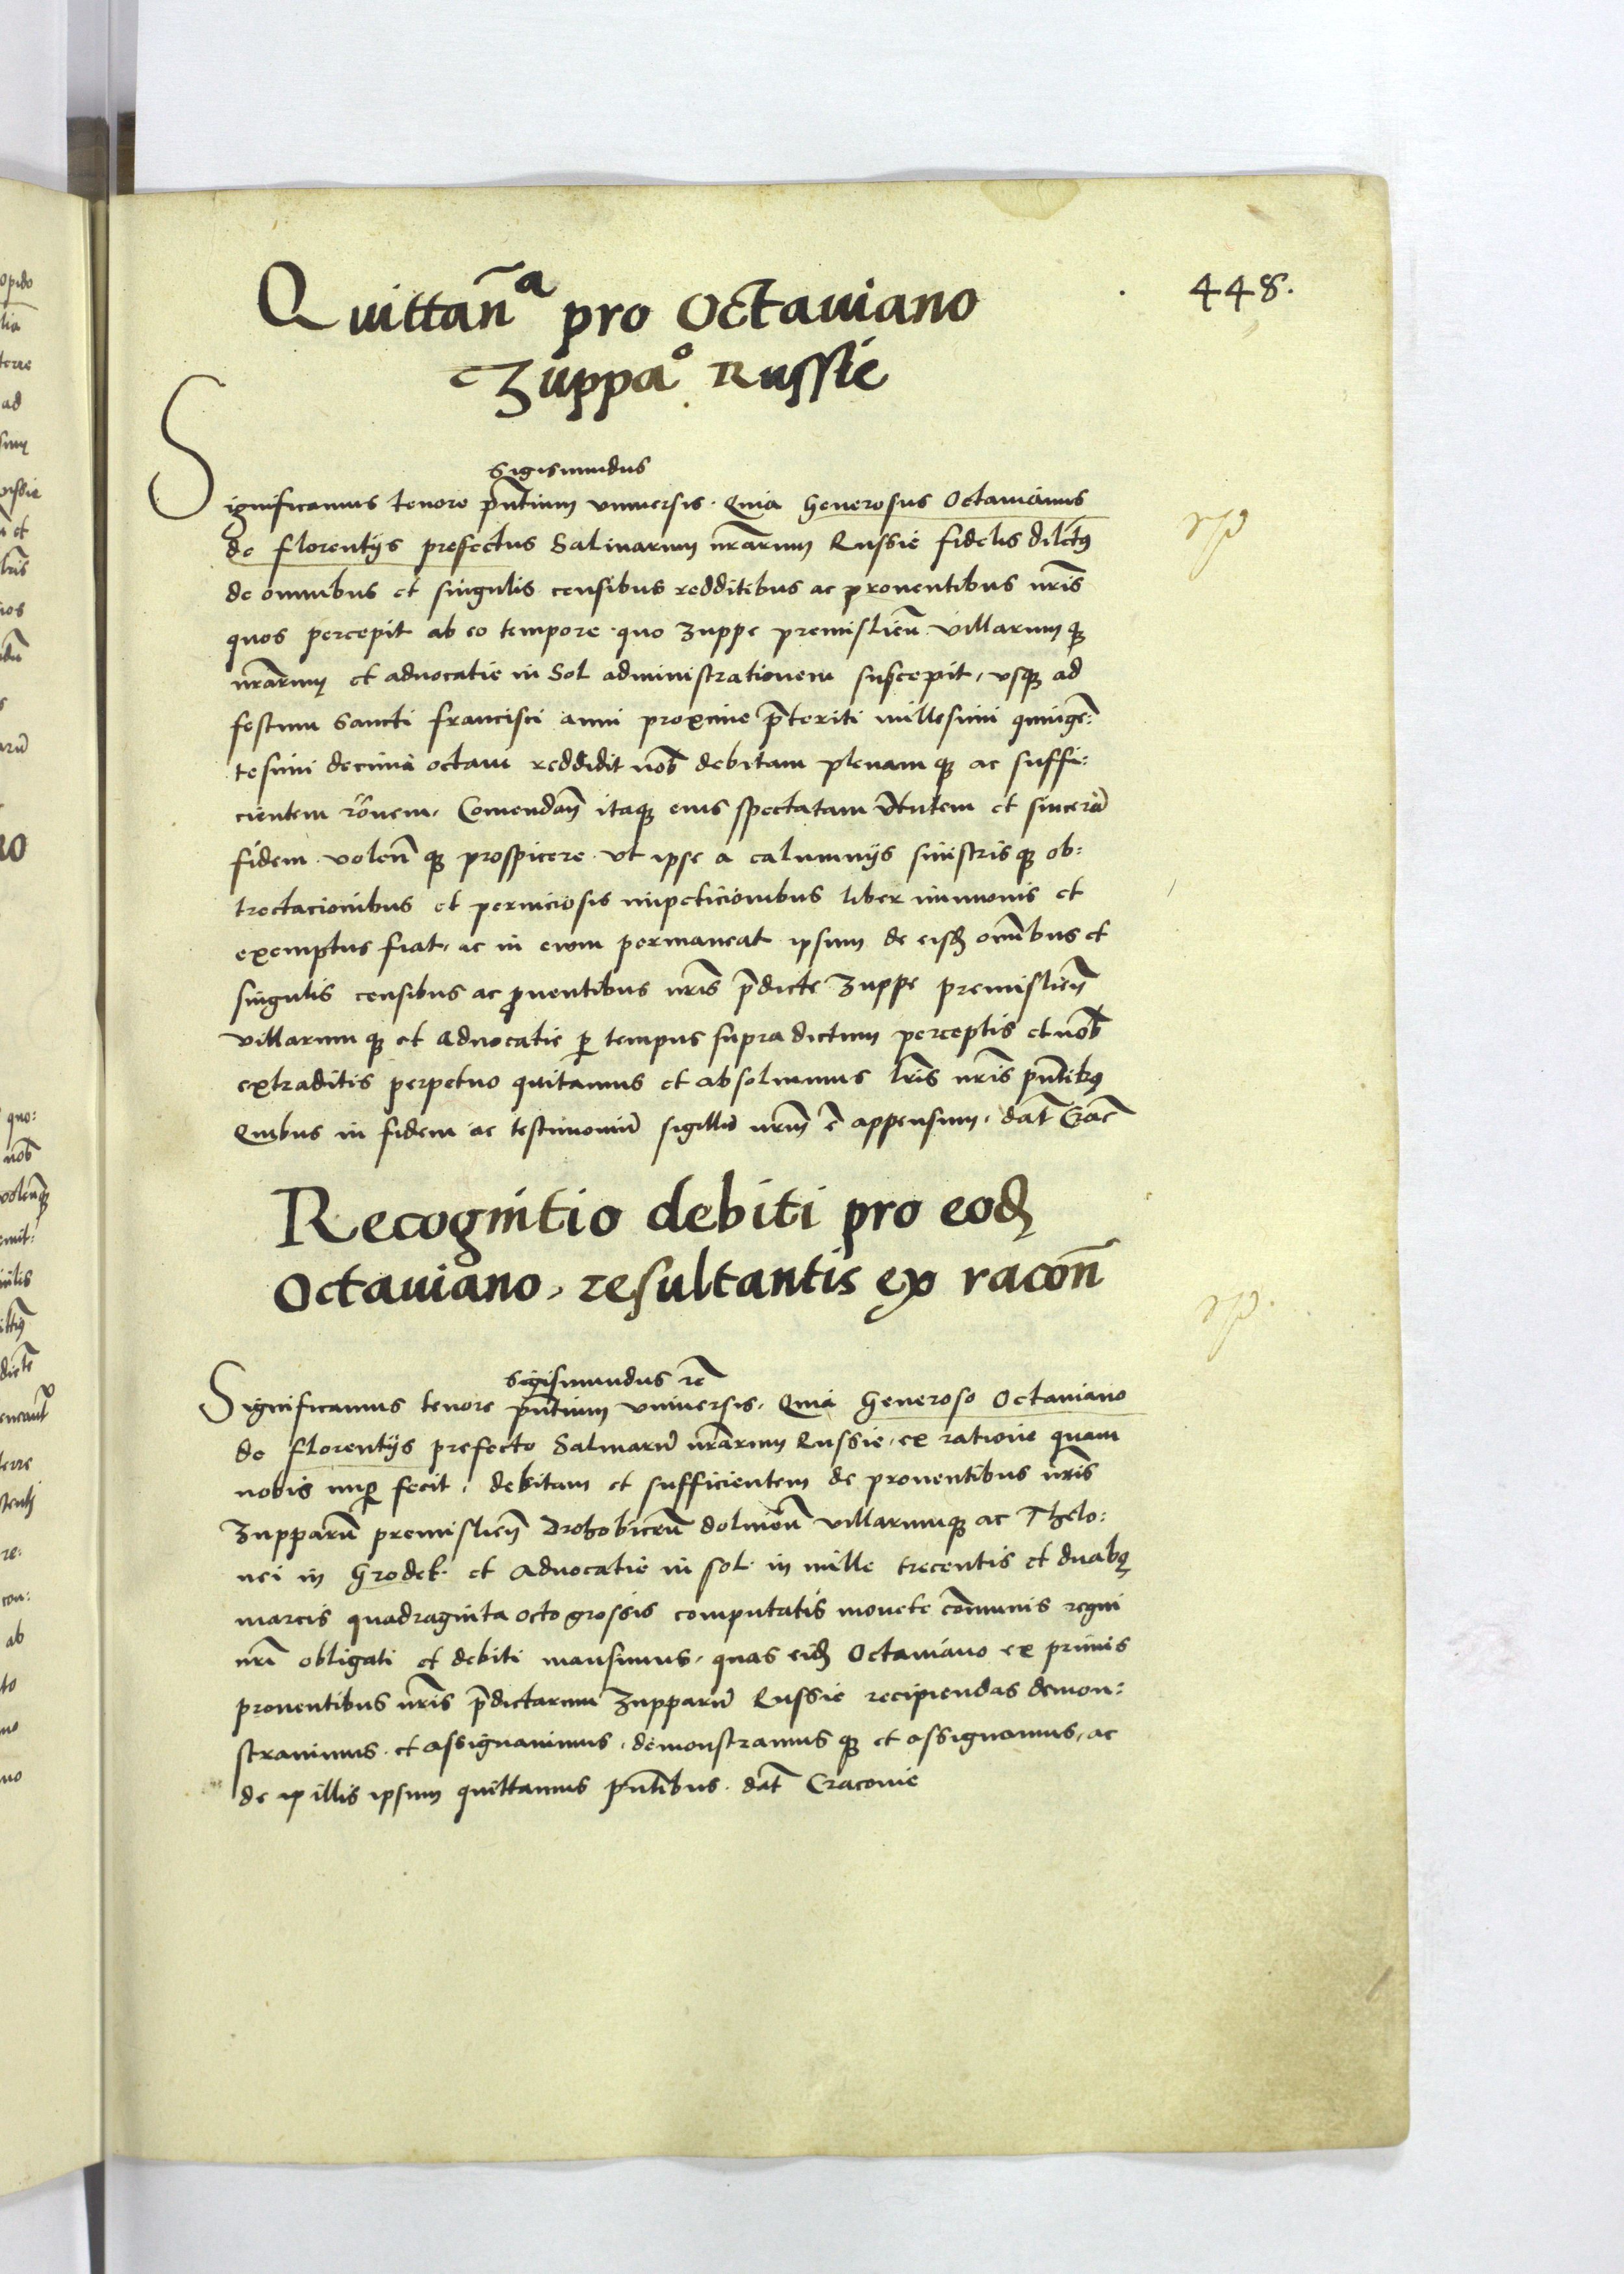 448.
Quittan̄ᵃ pro Octauiano
Zuppaº Russie
Sigismundus
Significamus tenore pn̄tium vniuersis. Quia Generosus Octauianus
de florentijs prefectus Salinarum nr̄arum Russie fidelis dilectꝰ
de omnibus et singulis censibus redditibus ac prouentibus nr̄is
quos percepit ab eo tempore quo zuppe premislien̄ villarumqꝫ
nr̄arum et aduocatie in Sol administrationem suscepit, vsqꝫ ad
festum Sancti francisci anni proxime p̄teriti millesimi quingē:
tesimi decimi octaui reddidit nob̄ debitam plenamqꝫ ac suffi:
cientem rōnem. Comendan̄ itaqꝫ eius spectatam v̄tutem et sincerā
fidem volen̄qꝫ prospicere vt ipse a calumnijs sinistrisqꝫ ob:
trectacionibus et perniciosis impeticionibus liber immunis et
exemptus fiat, ac in euum permaneat ipsum de eisd̄ omībus et
singulis censibus ac ꝓuentibus nr̄is p̄dicte Zuppe premislien̄
villarumqꝫ et aduocatie ꝑ tempus supra dictum perceptis et nob̄
extraditis perpetuo quitamus et absoluimus lr̄is nr̄is pn̄tibꝰ
Quibus in fidem ac testimoniū sigillū nr̄um ē appensum. dat̄ Crac̄
Recognitio debiti pro eod̄
Octauiano, resultantis ex racon̄
Sigismundus rc̄
Significamus tenore pn̄tium vniuersis. Quia Generoso Octauiano
de florentijs prefecto Salinarū nr̄arum Russie, ex ratione quam
nobis nuꝑ fecit, debitam et sufficientem de prouentibus nr̄is
Zupparū premislien̄ Drohobicen̄ dolinen̄ villarumqꝫ ac Thelo:
nei in Grodek et Aduocatie in sol in mille trecentis et duabꝰ
marcis quadraginta octo grossis computatis monete cōmunis regni
nr̄i obligati et debiti mansimus, quas eid̄ Octauiano ex primis
prouentibus nr̄is p̄dictarum Zupparū Russie recipiendas demon:
strauimus et assignauimus, demonstramusqꝫ et assignamus, ac
de illis ipsum quittamus pn̄tibus. dat̄ Cracouie